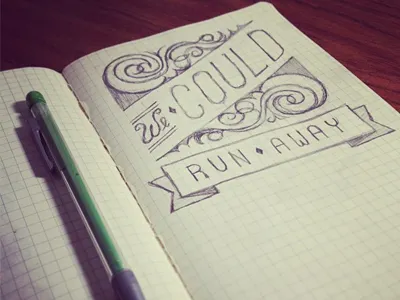 We • COULD
RUN • AWAY